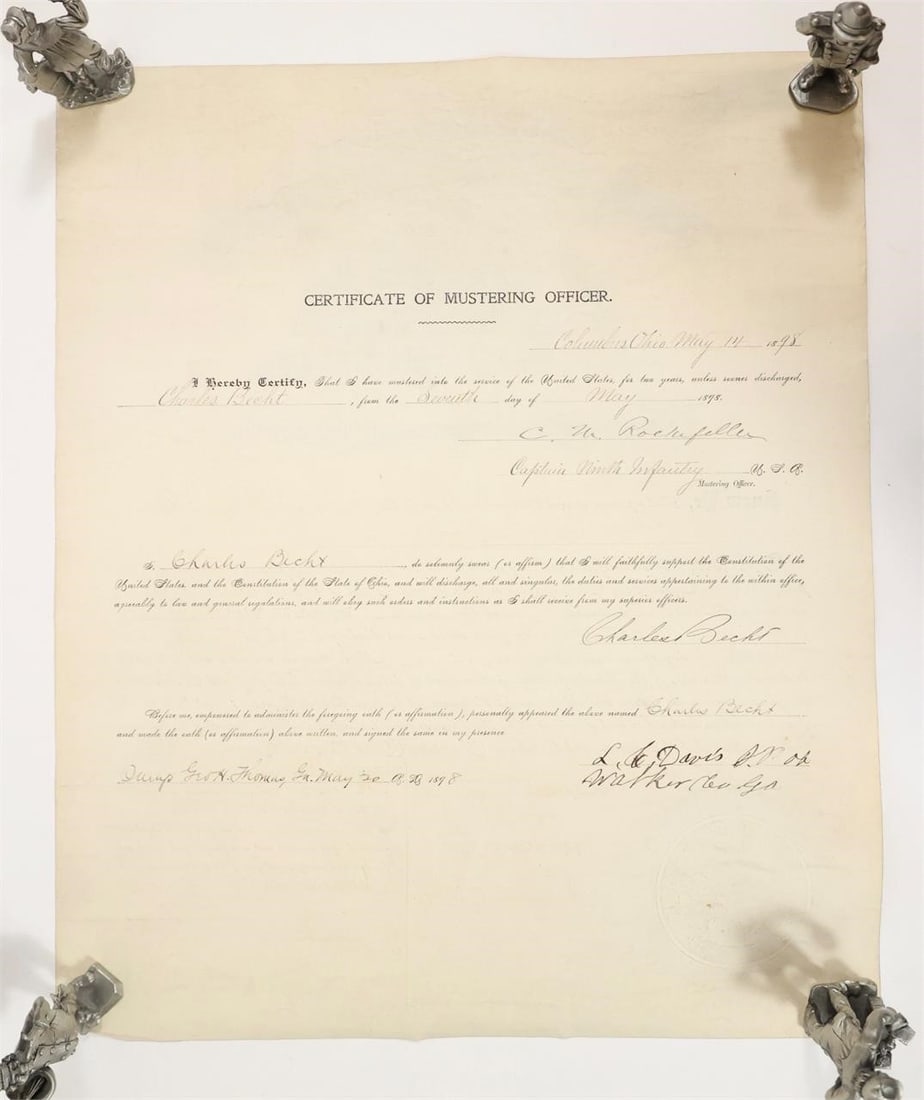 CERTIFICATE OF MUSTERING OFFICER.
Columbus Ohio May 14 1898
I Hereby Certify, That I have mustered into the service of the United States, for two years, unless sooner discharged,
Charles Becht, from the Seventh day of May 1898.
C. M. Rockefeller
Captain Ninth Infantry U. S. A.
Mustering Officer.
I, Charles Becht, do solemnly swear (or affirm) that I will faithfully support the Constitution of the
United States, and the Constitution of the State of Ohio, and will discharge, all and singular, the duties and services appertaining to the within office,
agreeably to law and general regulations, and will obey such orders and instructions as I shall receive from my superior officers.
Charles Becht
Before me, empowered to administer the foregoing oath (or affirmation), personally appeared the above named Charles Becht
and made the oath (or affirmation) above written, and signed the same in my presence
Camp Geo H. Thomas, Ga. May 20 A. D. 1898
L. C. Davis J. P.
Walker Co Ga